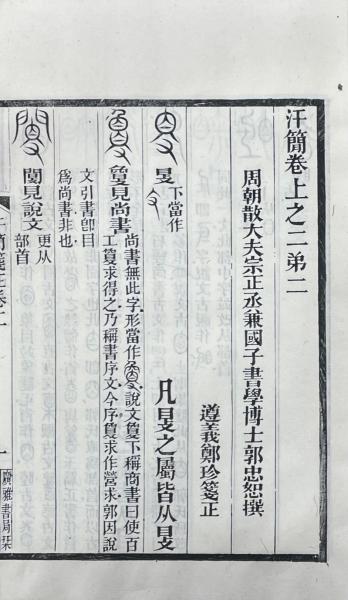 汗簡卷上之二弟二
周朝散大夫宗正丞兼國子書學博士郭忠恕撰
遵義鄭珍箋正
旻 下當作 凡旻之屬皆从旻
敻見尚書 尚書無此字形當作 說文敻下稱商書曰使百
工敻求得之乃稱書序文今序敻求作營求郭因說
文引書卽目
爲尚書非也
閿見說文 更从
部首
廣雅書局栞